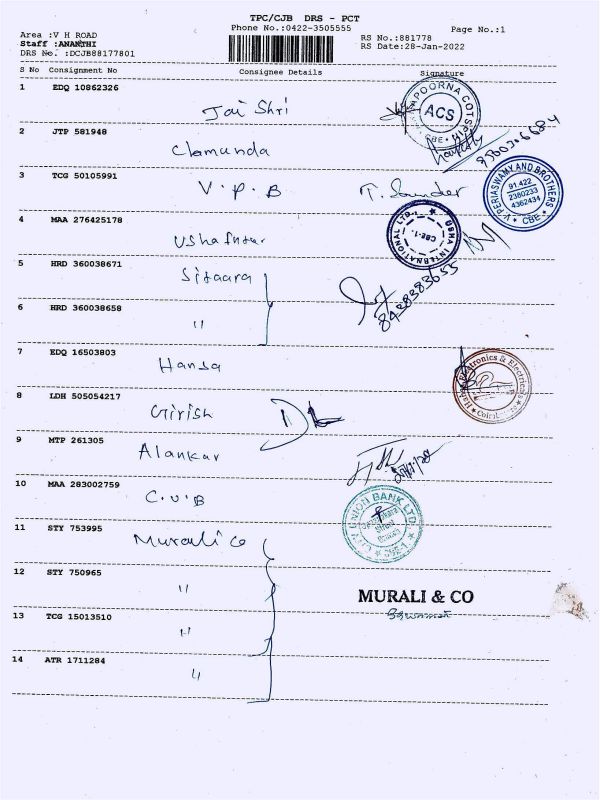 TPC/CJB DRS - PCT
Phone No.:0422-3505555
Page No.:1
Area :V H ROAD
Staff :ANANTHI
DRS No. :DCJB88177801
RS No.:881778
RS Date:28-Jan-2022
S No Consignment No Consignee Details Signature
1 EDQ 10862326 Jai Shri
POORNA COTS
ACS
CBE
2 JTP 581948 Chamunda
9500306684
3 TCG 50105991 V.P.B T. Sunder
V. PERIASWAMY AND BROTHERS
91.422
2380233
4362434
CBE
4 MAA 276425178 Usha
USHA INTERNATIONAL LTD.
CBE-1.
5 HRD 360038671 Sitaara
8438383653
6 HRD 360038658 "
7 EDQ 16503803 Hansa
Electronics & Electricals
8 LDH 505054217 Girish
9 MTP 261305 Alankar
10 MAA 283002759 C.U.B
CITY UNION BANK LTD.
CBE-1
11 STY 753995 Murali Co
12 STY 750965 "
MURALI & CO
13 TCG 15013510 "
14 ATR 1711284 "